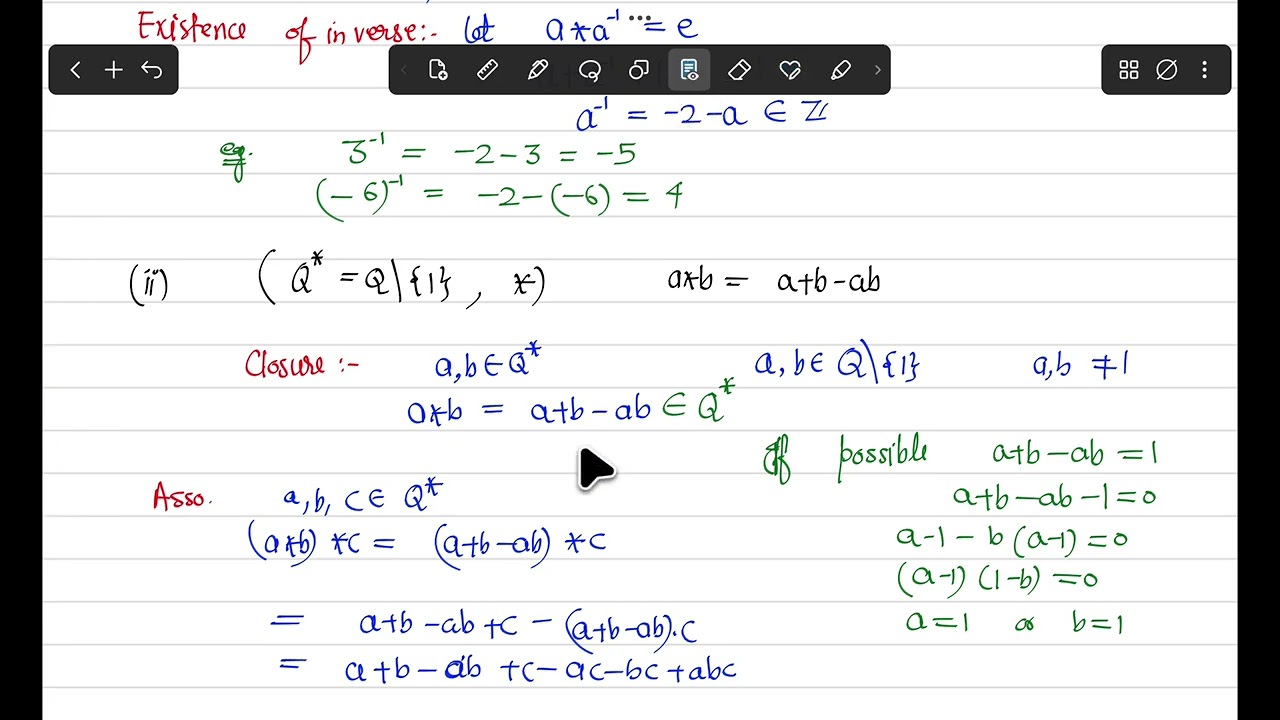 Existence of inverse:- let a*a⁻¹ = e
a⁻¹ = -2-a ∈ ℤ
eg. 3⁻¹ = -2-3 = -5
(-6)⁻¹ = -2-(-6) = 4
(ii) (Q* = Q\{1}, *) a*b = a+b-ab
Closure:- a,b ∈ Q* a,b ∈ Q\{1} a,b ≠ 1
a*b = a+b-ab ∈ Q*
If possible a+b-ab = 1
Asso. a,b,c ∈ Q* a+b-ab-1=0
(a*b)*c = (a+b-ab)*c a-1-b(a-1)=0
(a-1)(1-b)=0
= a+b-ab+c-(a+b-ab).c a=1 or b=1
= a+b-ab+c-ac-bc+abc